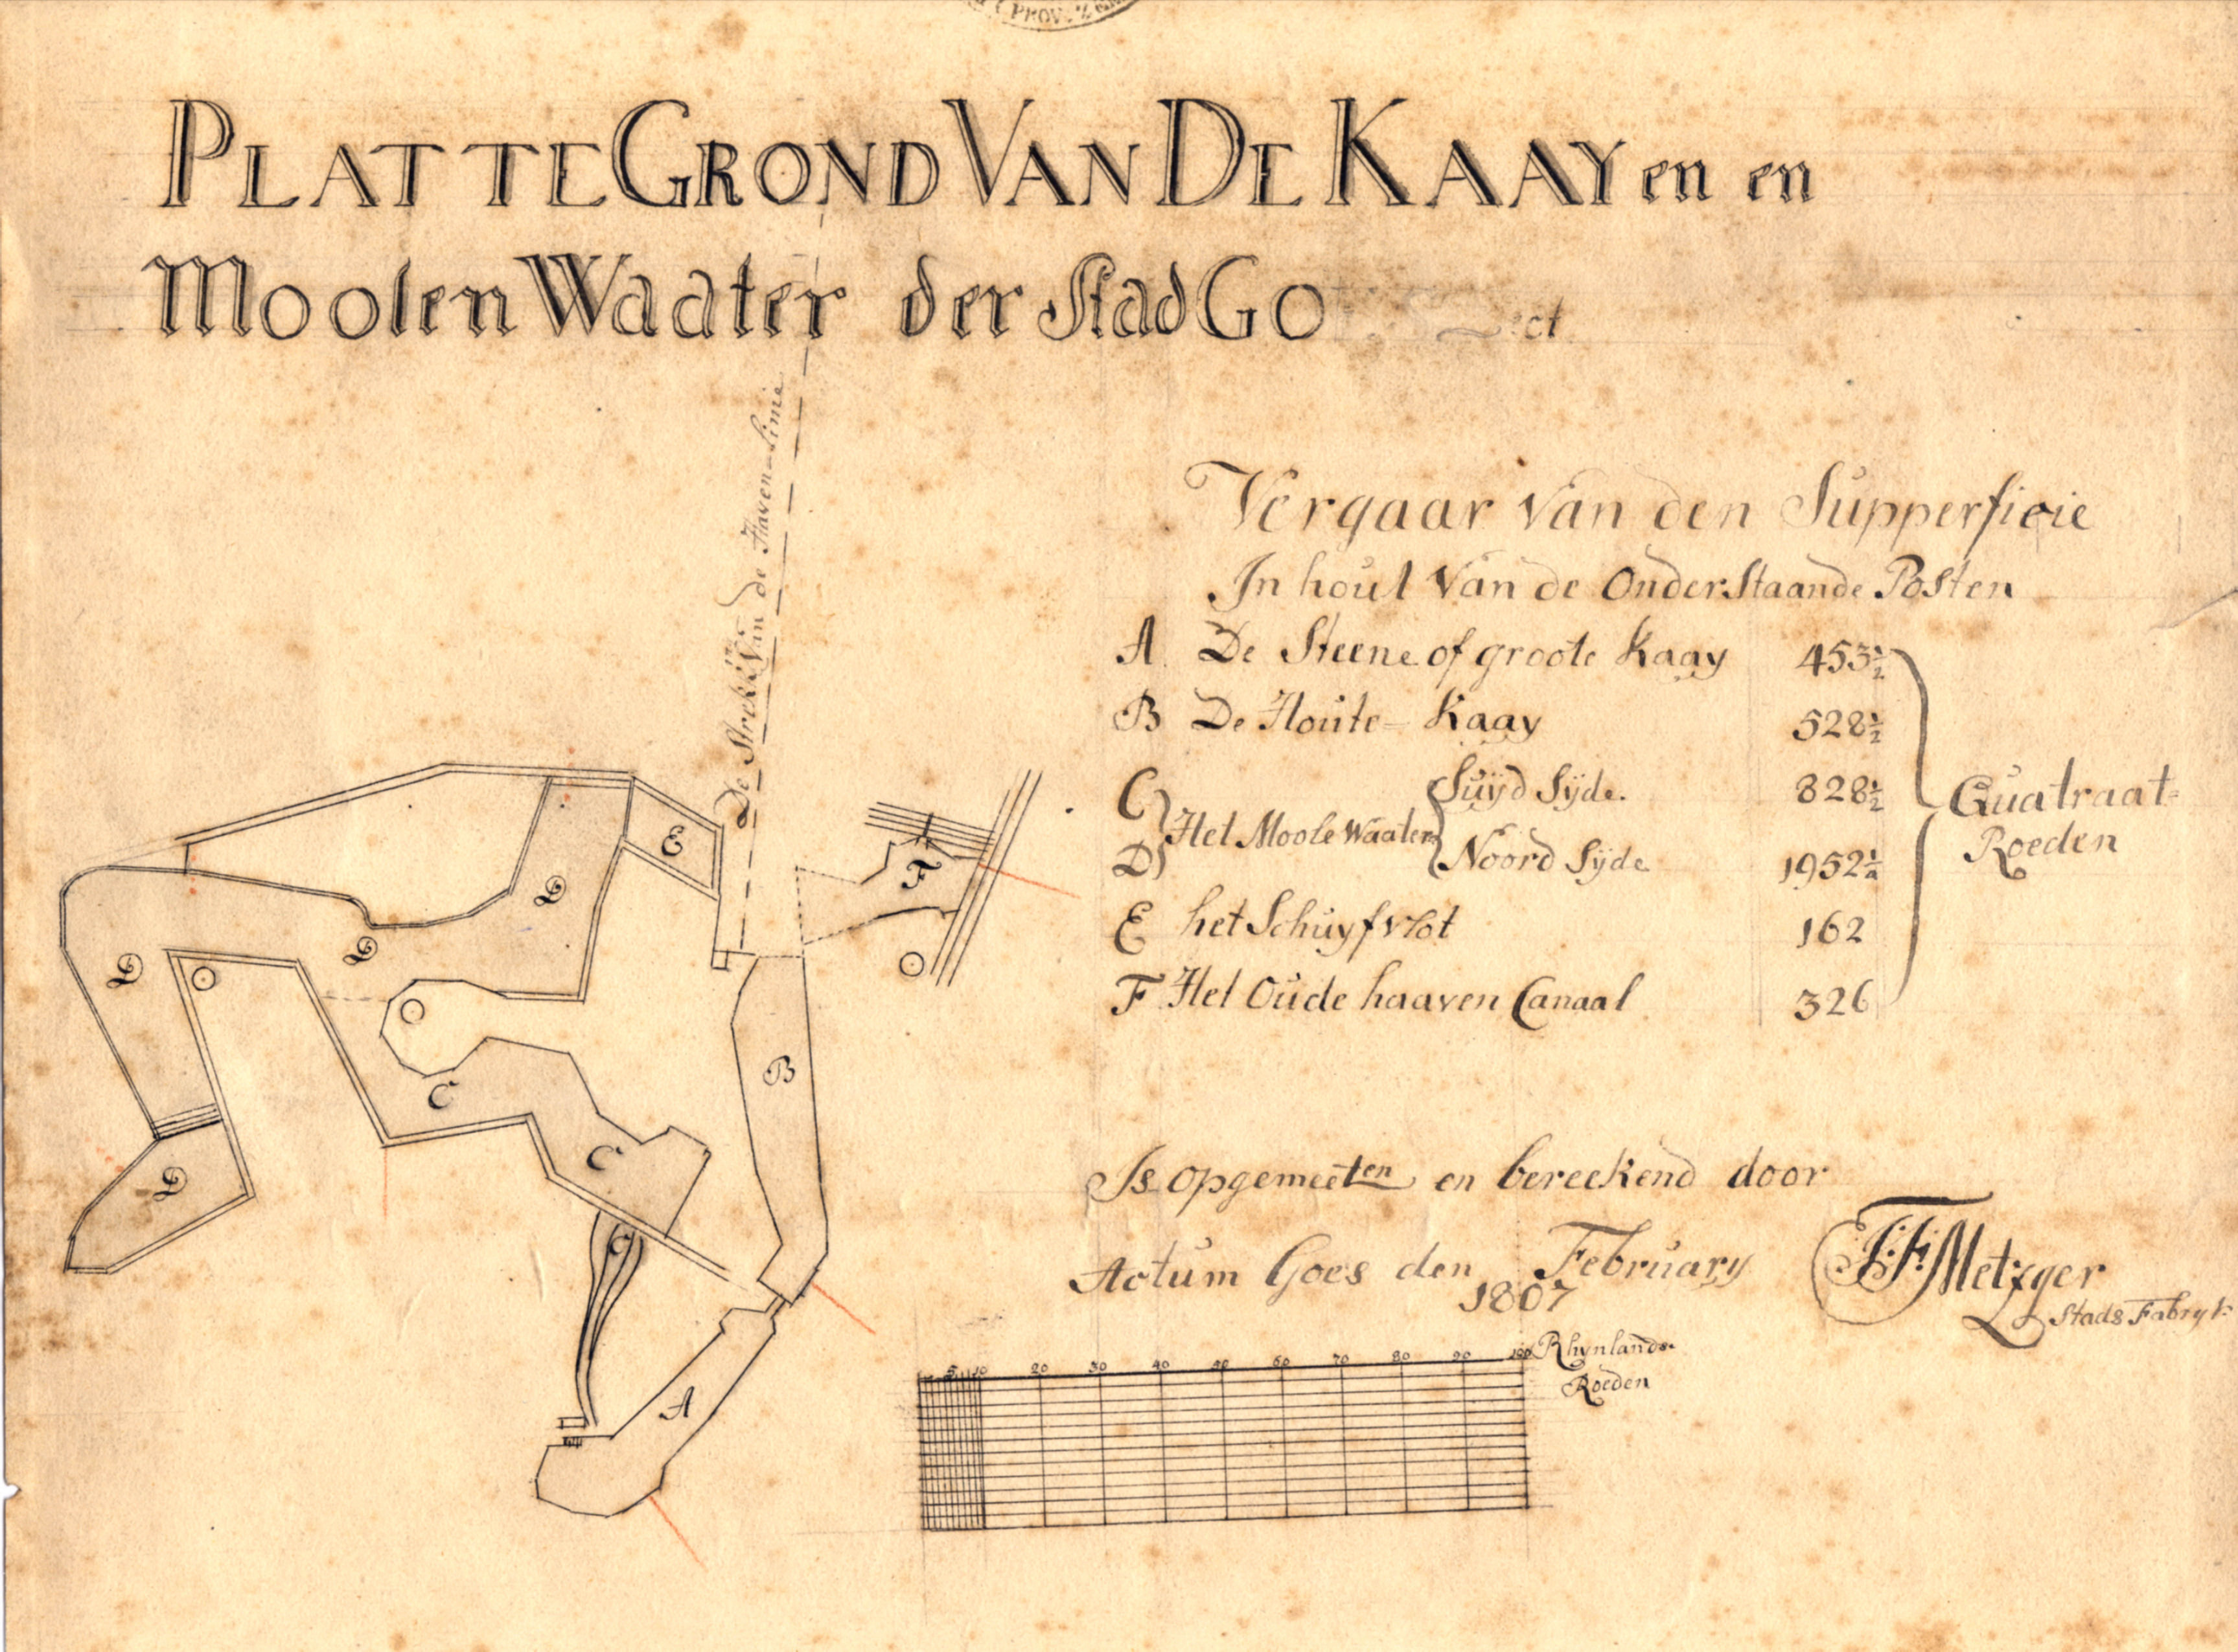 PROV. ZE
PLATTE GROND VAN DE KAAY en en
Moolen Waater der Stad GO
De Strekking Van de Haven-Linie
Vergaar Van den Supperficie
In hout Van de OnderStaande Posten
A De Steene of groote Kaay 453½
B De Houte- Kaay 528½
C Suyd Syde. 828½
Het Moole Waater
D Noord Syde 1952½
Quatraat-
Roeden
E het Schuyfvlot 162
F Het Oude haaven Canaal 326
E
F
D
D
D
D
C
C
C
B
A
Is opgemeeten en bereekend door
Actum Goes den February
1807
J:F: Metzger
Stads Fabryk
5 10 20 30 40 50 60 70 80 90 100 Rhynlands-
Roeden